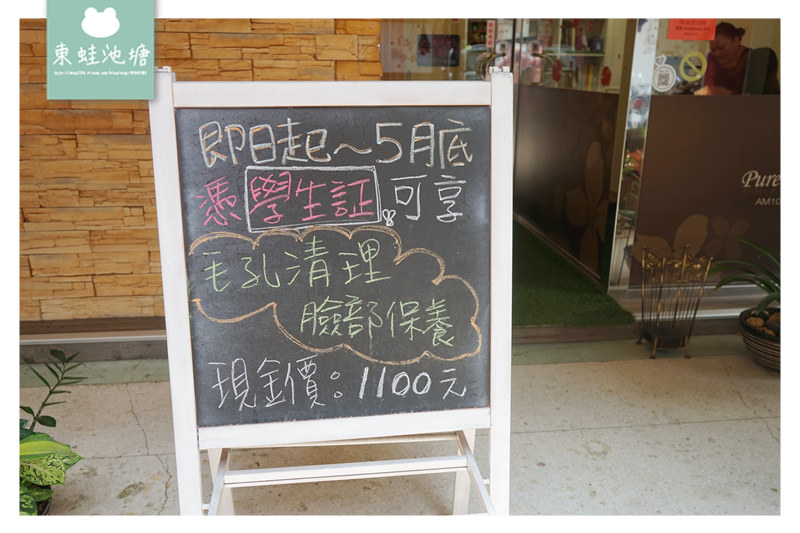 東蛙池塘
即日起～5月底
憑學生証可享
毛孔清理
臉部保養
現金價。1100元
Pure
AM10